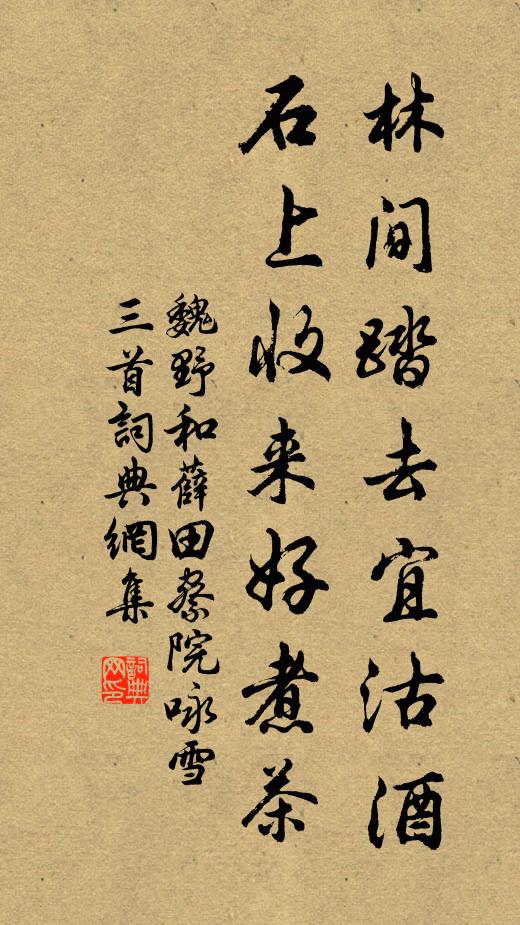 林间踏去宜沽酒
石上收来好煮茶
魏野和薛田察院咏雪
三首詞典網集
詞典网印